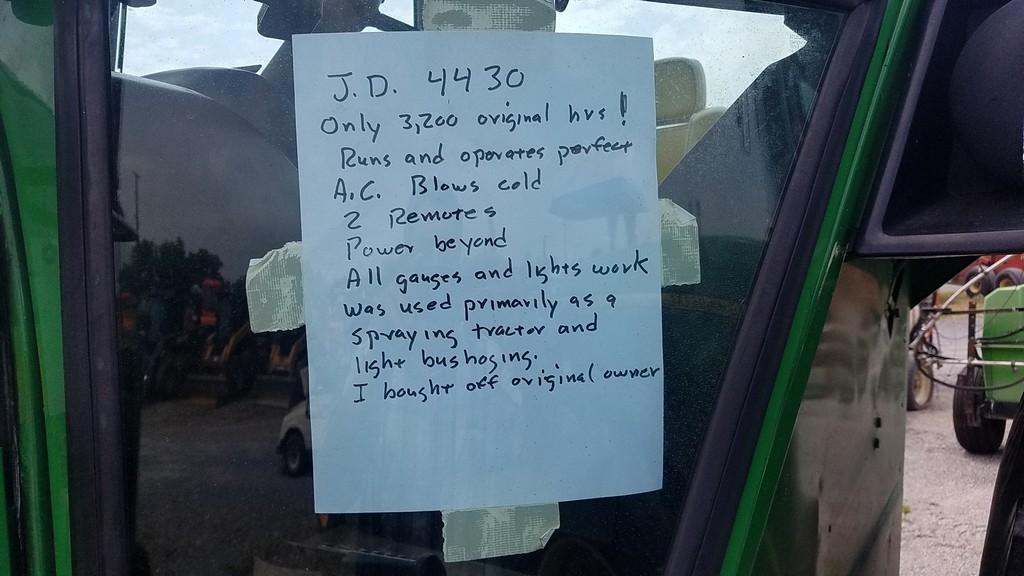 J.D. 4430
Only 3,200 original hrs!
Runs and operates perfect
A.C. Blows cold
2 Remotes
Power beyond
All gauges and lights work
was used primarily as a
spraying tractor and
light bushoging.
I bought off original owner